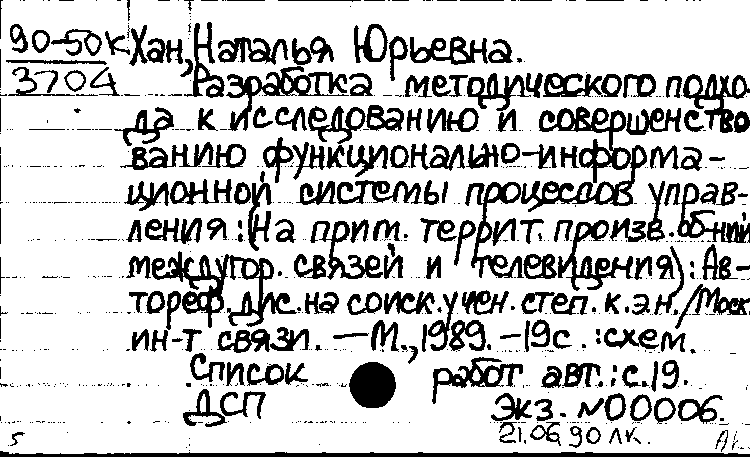 90-50к Хан, Наталья Юрьевна.
3704 Разработка методического подхо-
да к исследованию и совершенство-
ванию функционально-информа-
ционной системы процессов управ-
ления: (На прим. террит. произв. об-ний
междугор. связей и телевидения): Ав-
тореф. дис. на соиск. учен. степ. к. э. н. / Моск.
ин-т связи. — М., 1989. — 19с. : схем.
Список работ авт.: с. 19.
ДСП Экз. N00006.
5 21.06.90 ЛК.